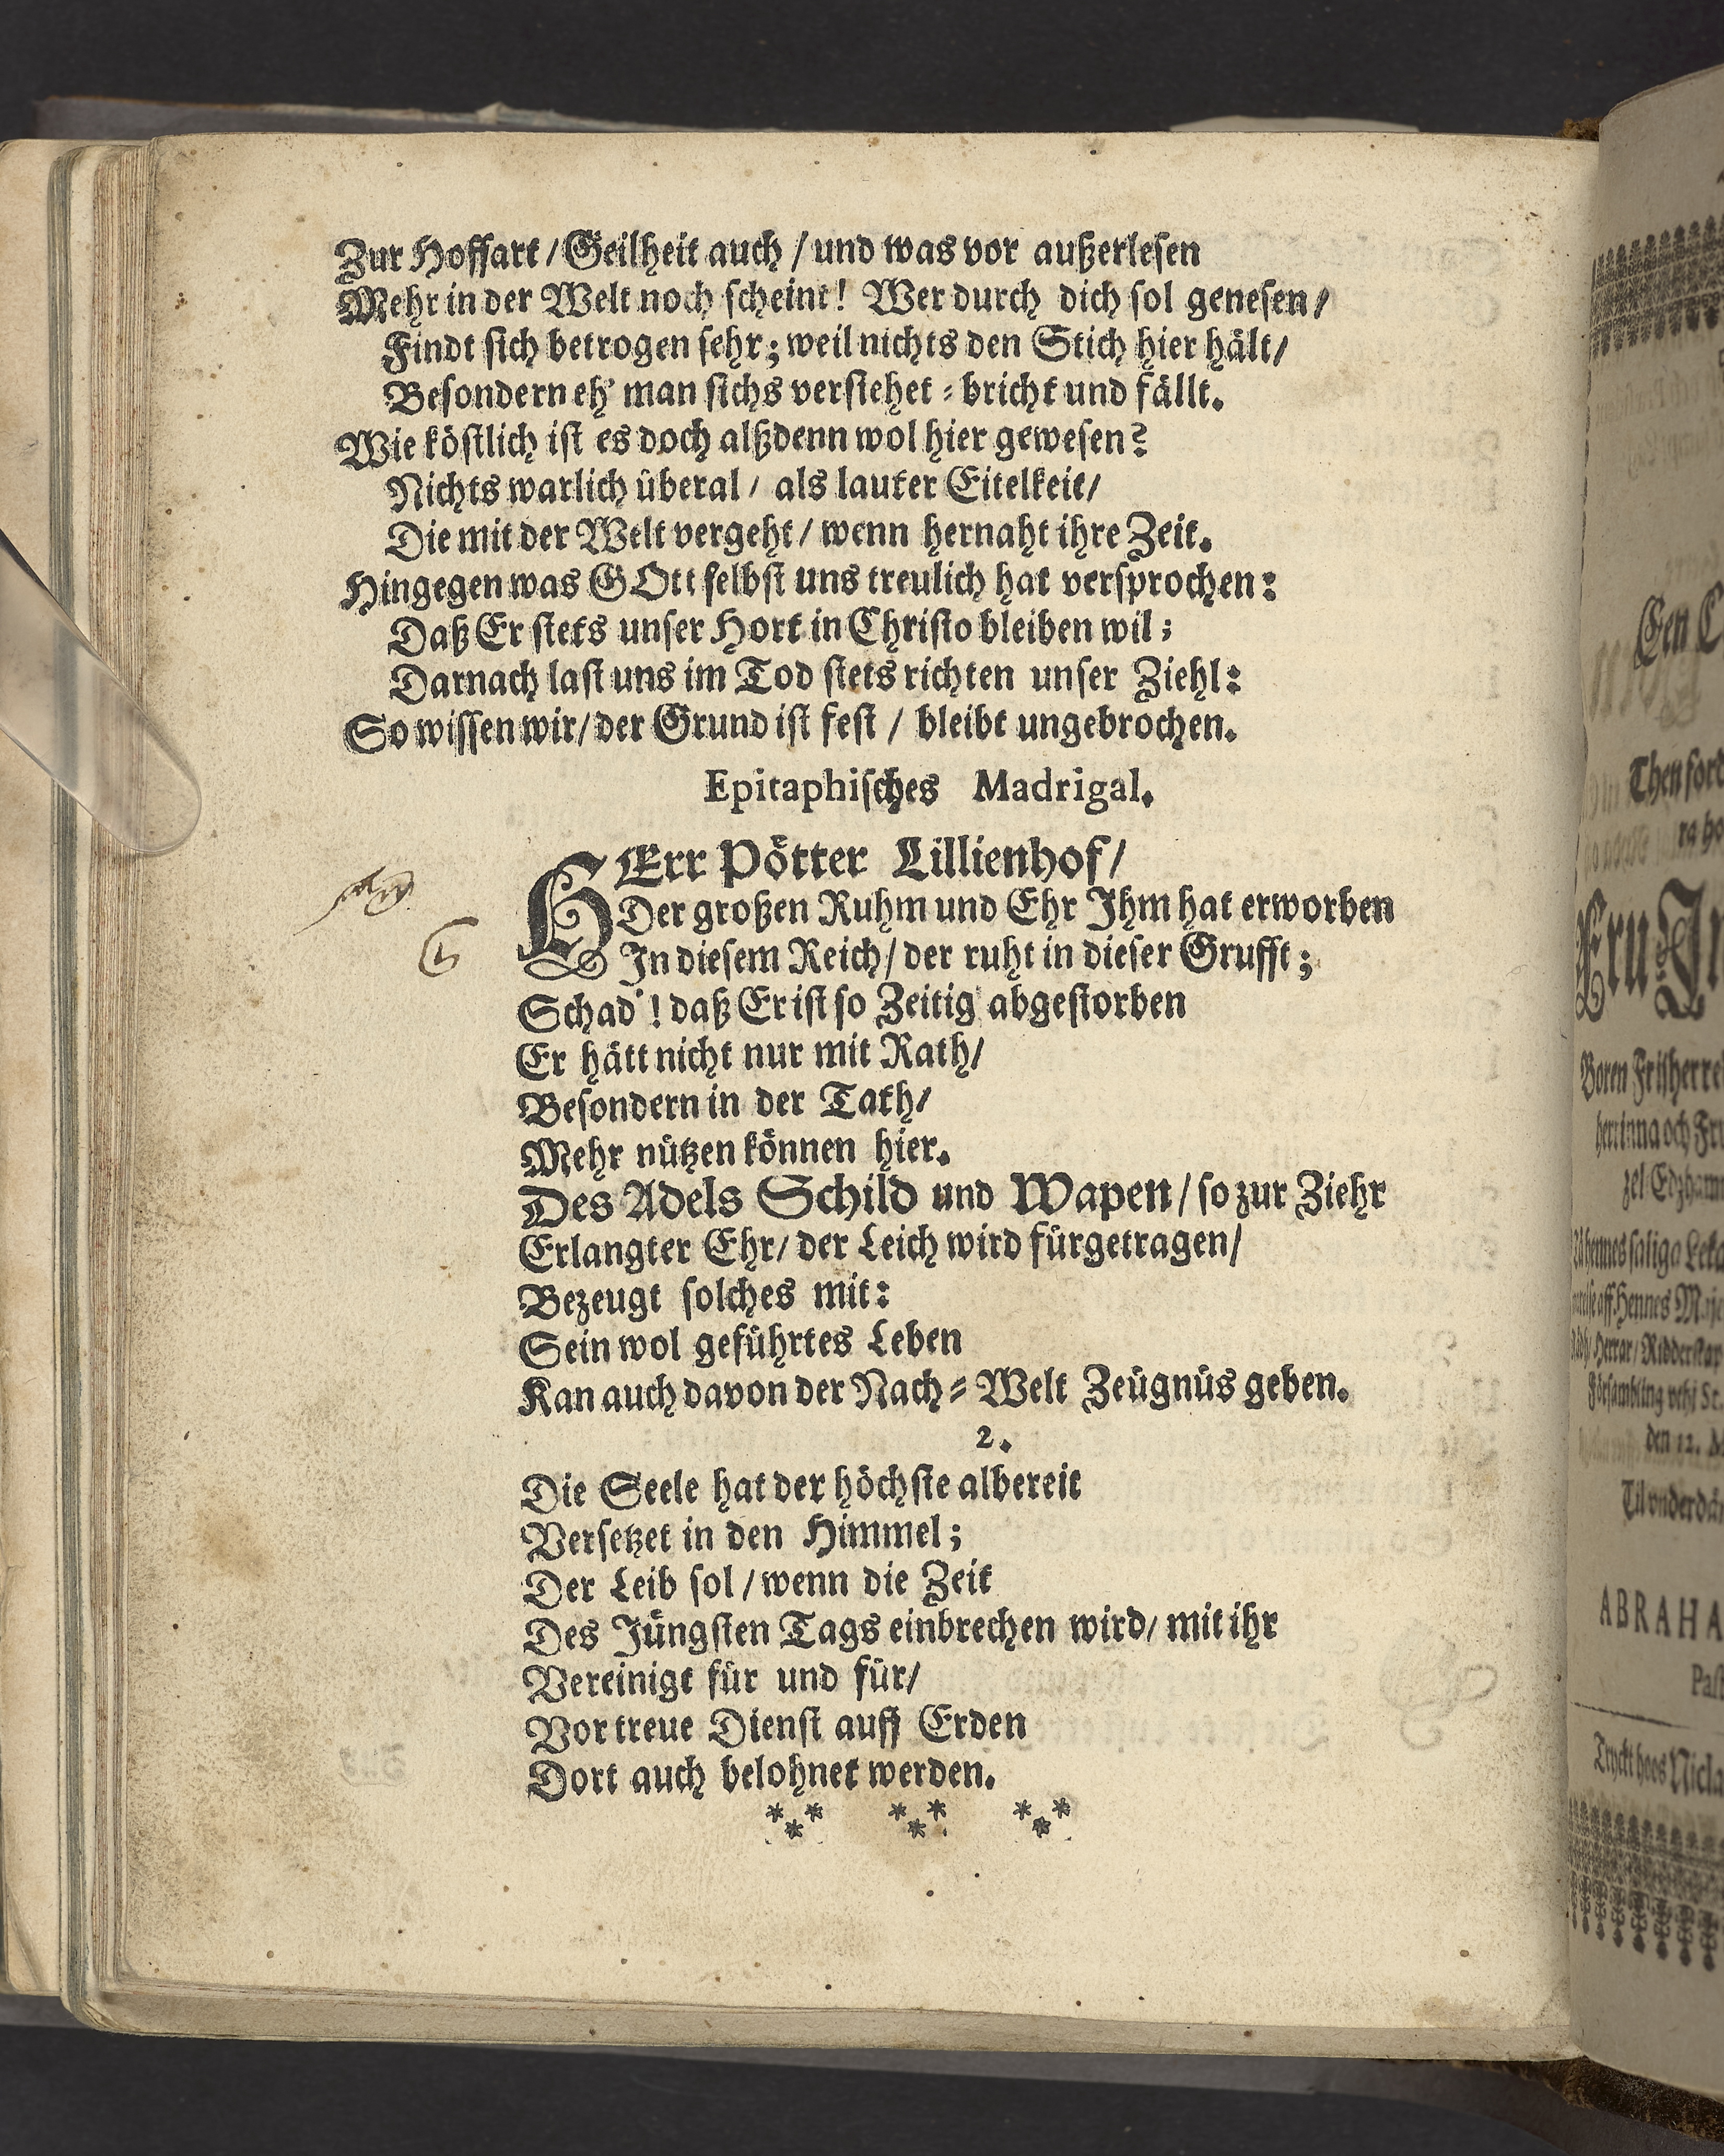 Zur Hoffart / Geilheit auch / und was vor außerlesen
Mehr in der Welt noch scheint! Wer durch dich sol genesen /
Findt sich betrogen sehr; weil nichts den Stich hier hält /
Besondern eh' man sichs versiehet = bricht und fällt.
Wie köstlich ist es doch alßdenn wol hier gewesen?
Nichts warlich überal / als lauter Eitelkeit /
Die mit der Welt vergeht / wenn hernaht ihre Zeit.
Hingegen was GOtt selbst uns treulich hat versprochen:
Daß Er stets unser Hort in Christo bleiben wil;
Darnach last uns im Tod stets richten unser Ziehl:
So wissen wir / der Grund ist fest / bleibt ungebrochen.
Epitaphisches Madrigal.
HErr Pötter Lillienhof /
Der großen Ruhm und Ehr Ihm hat erworben
In diesem Reich / der ruht in dieser Grufft;
Schad'! daß Er ist so Zeitig abgestorben
Er hätt nicht nur mit Rath /
Besondern in der Tath /
Mehr nützen können hier.
Des Adels Schild und Wapen / so zur Ziehr
Erlangter Ehr / der Leich wird fürgetragen /
Bezeugt solches mit:
Sein wol geführtes Leben
Kan auch davon der Nach = Welt Zeügnüs geben.
2.
Die Seele hat der höchste albereit
Versetzet in den Himmel;
Der Leib sol / wenn die Zeit
Des Jüngsten Tags einbrechen wird / mit ihr
Vereinigt für und für /
Vor treue Dienst auff Erden
Dort auch belohnet werden.
Then ford
Boren Friherre
herrinna och Fru
Herrar / Ridderskap
den 12. M
ABRAHA
Past
Tryckt hoos Nicla